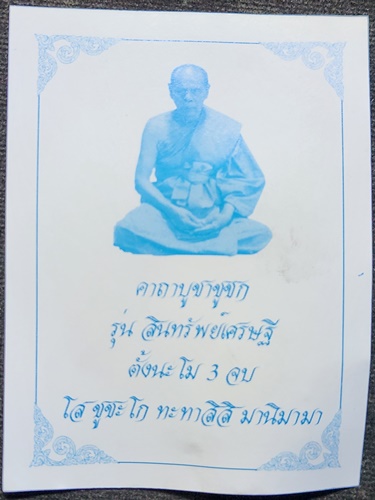 คาถาบูชาชูชก
รุ่น สินทรัพย์เศรษฐี
ตั้งนะโม 3 จบ
โส ชูชะโก ทะทาสิสิ มานิมามา